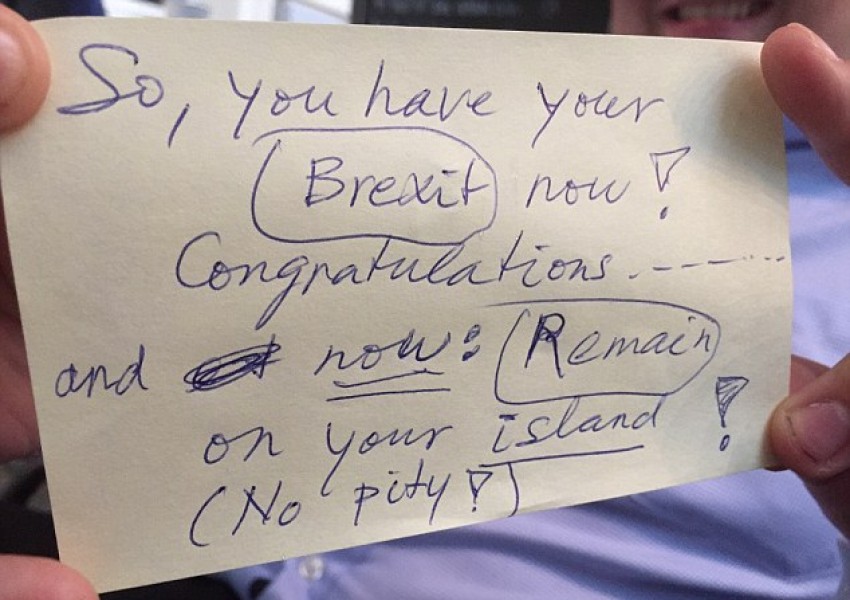 So, you have your
Brexit now!
Congratulations.-----
and now: Remain
on your island!
(No pity!)